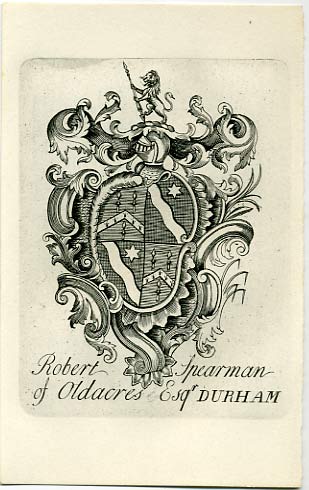 Robert Spearman
of Oldacres Esqr DURHAM